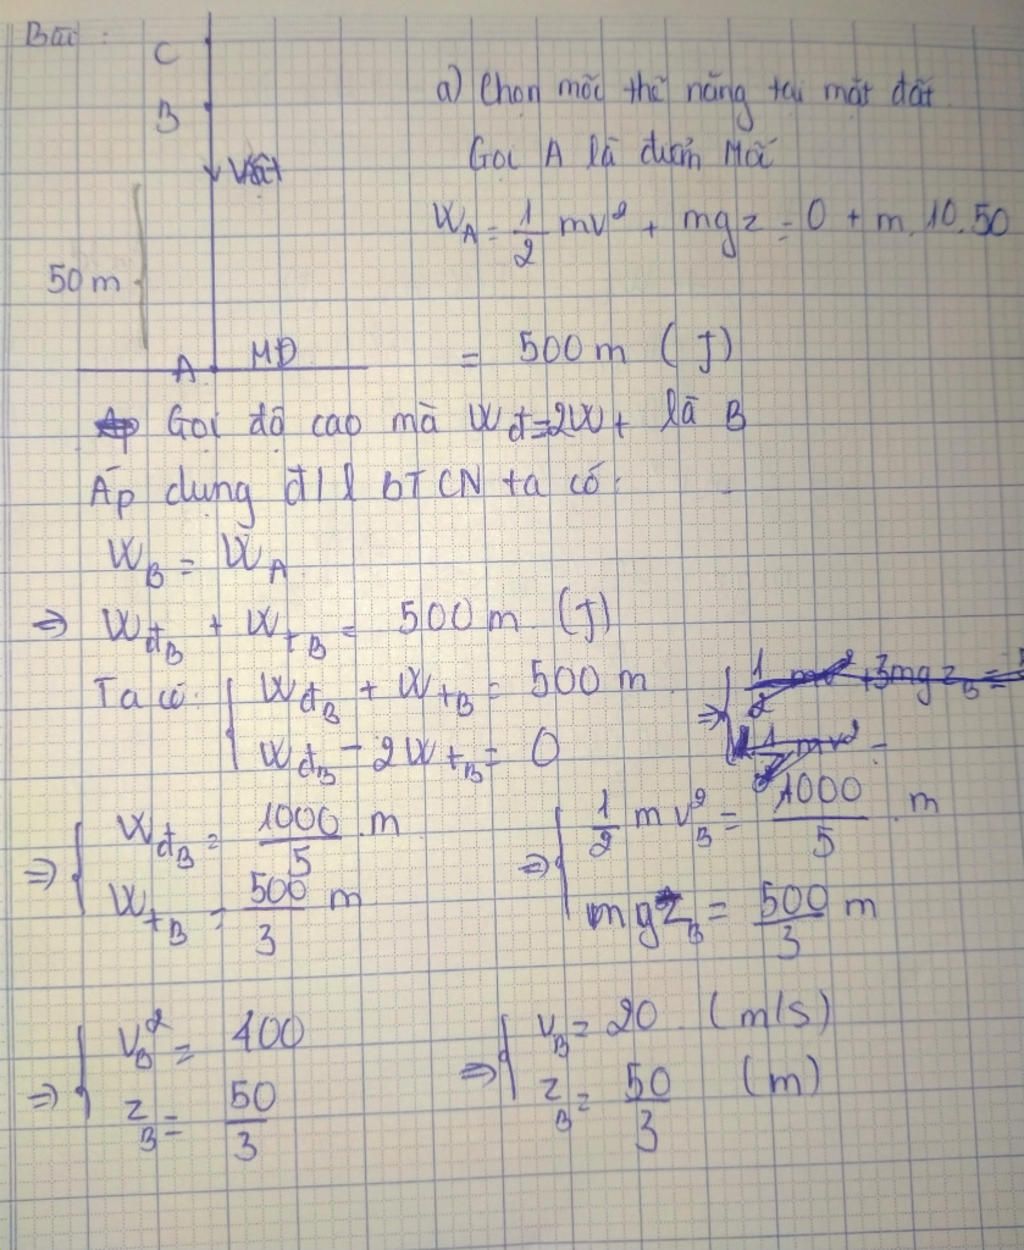 Bài :
C
B
Vật
50 m
A MĐ
a) Chọn mốc thế năng tại mặt đất
Gọi A là
W_A = 1/2 mv² + mgz = 0 + m.10.50
= 500 m (J)
Gọi độ cao mà Wđ=2Wt là B
Áp dụng đ/l BTCN ta có:
W_B = W_A
=> Wđ_B + Wt_B = 500 m (J)
Ta có: { Wđ_B + Wt_B = 500 m
Wđ_B - 2Wt_B = 0
=> { Wđ_B = 1000/5 .m
Wt_B = 500/3 m
=> { 1/2 m v_B² = 1000/5 . m
mgz_B = 500/3 m
=> { v_B² = 400
z_B = 50/3
=> { v_B = 20 (m/s)
z_B = 50/3 (m)